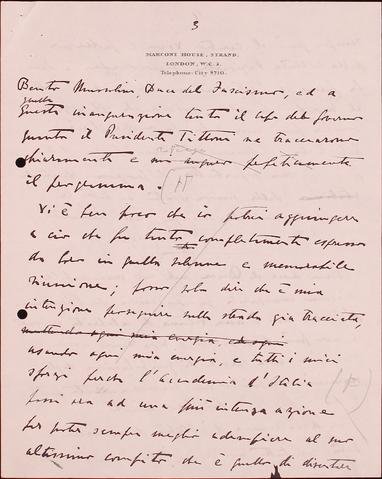 3
MARCONI HOUSE, STRAND,
LONDON, W.C.2.
Telephone: City 8710.
Benito Mussolini, Duce del Fascismo, ed a
quella
inaugurazione tanto il capo del Governo
quanto il Presidente Tittoni ne tracciarono
chiaramente e perfettamente
il programma. (H)
Vi è ben poco che io potrei aggiungere
a ciò che fu tanto completamente espresso
da loro in quella solenne e memorabile
riunione; posso solo dire che è mia
intenzione proseguire sulla strada già tracciata,
mettendo ogni mia energia, ed ogni
usando ogni mia energia, e tutti i miei
sforzi perchè l'Accademia d'Italia
possa ad una più intensa azione
per poter sempre meglio adempiere al suo
altissimo compito che è quello di